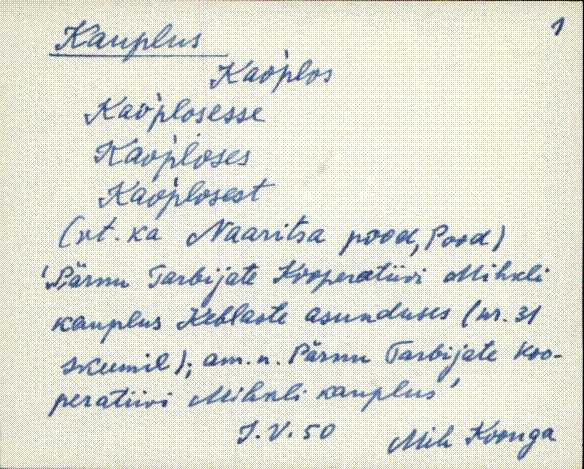 1
Kauplus
Kao'plos
Kao'plosesse
Kao'ploses
Kao'plosest
(vt. ka Naaritsa pood, Pood)
'Pärnu Tarbijate Kooperatiivi Mihkli
kauplus Keblaste asunduses (nr. 31
skeemil); am. n. Pärnu Tarbijate Koo-
peratiivi Mihkli kauplus'
J. V. 50 Mih Koonga